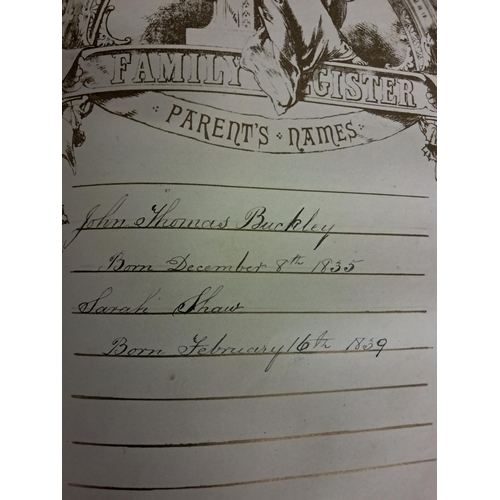 FAMILY REGISTER
PARENT'S NAMES
John Thomas Buckley
Born December 8th 1835
Sarah Shaw
Born February 16th 1839